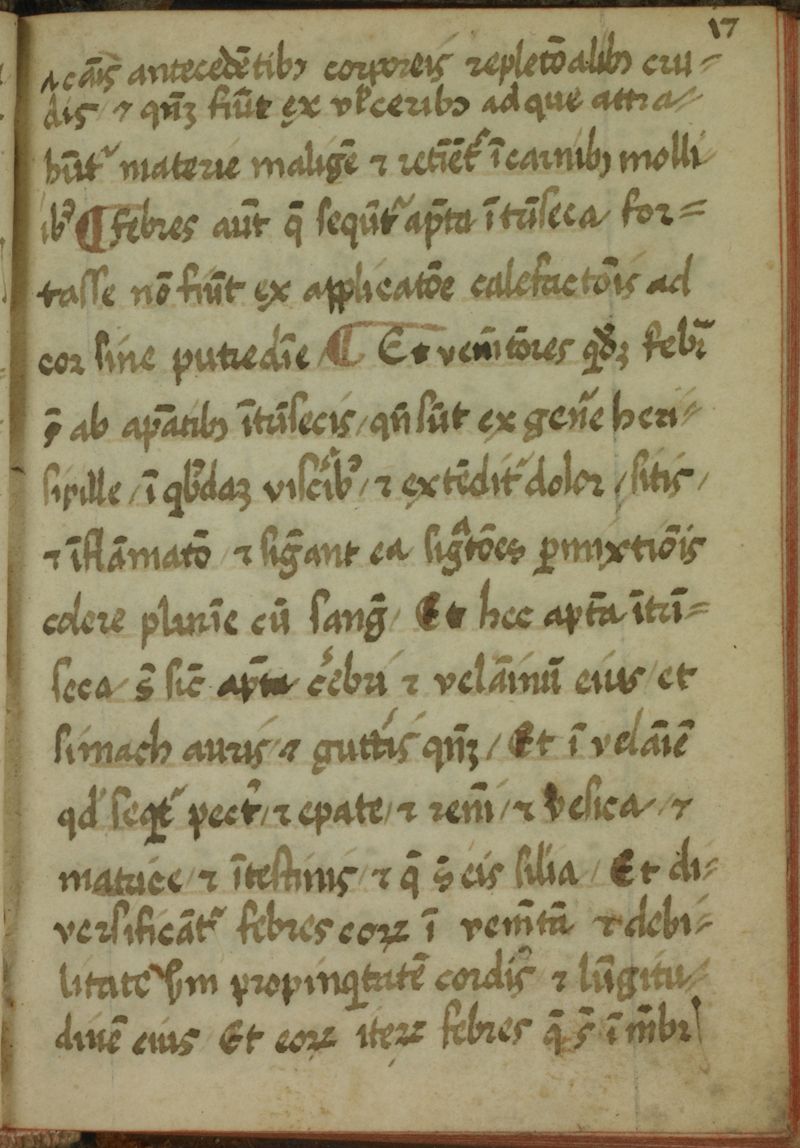 17
a cāīs antecedētibꝫ corporeis repletōalibꝫ cru=
dis / ⁊ qn̄ꝫ fiūt ex vlceribꝫ ad que attra=
hūtᷣ materie maligē ⁊ retiētᷣ ī carnibꝫ molli
ibꝰ ¶ febres aūt q̄ sequūtᷣ ap̄ta ītūseca for=
tasse nō fiūt ex applicatōe calefactōis ad
cor sine putredīe / ¶ Et vemētōres qd̄ꝫ febrꝭ
ꝭ ab ap̄atibꝫ ītūsecis / qn̄ sūt ex gen̄e heri=
sipille / ī qbꝰdaꝫ viscībꝰ / ⁊ extēditᷣ dolor / sitis /
⁊ īflāmatō ⁊ sigāant ea sigᷓtōes ꝑmixtiōis
colere plurīe cū sanḡ / Et hec apt̄a ītrī=
seca s̄ sic̄ ap̄ta cēbri ⁊ velāinū eius / et
simach auris / ⁊ guttīs qn̄ꝫ / Et ī velāīē
qd' seqtᷣ pectꝰ / ⁊ epate / ⁊ renī / ⁊ vesica / ⁊
matrice / ⁊ ītestinis / ⁊ q̄ s̄ eis silīa / Et di=
versificātᷣ febres eoꝝ ī vemētā ⁊ debi=
litate s̄m propinqtatē cordis ⁊ lūgitu=
dinē eius Et eoꝝ iteꝝ febres q̄ s̄ ī mēbrꝭ